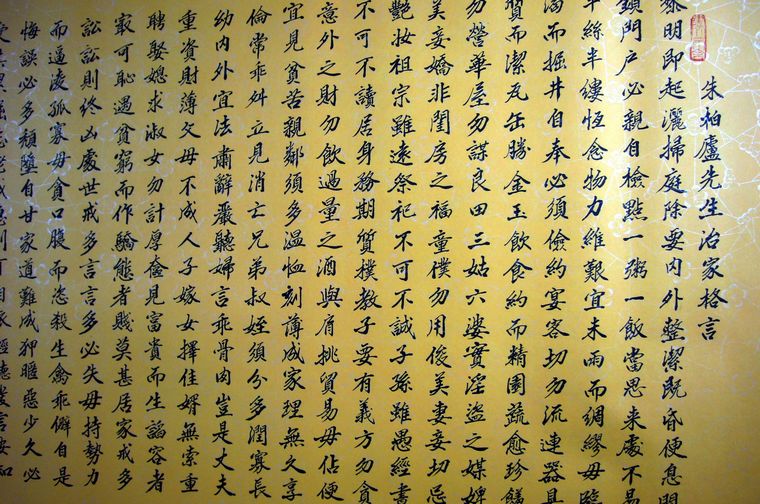 朱柏廬先生治家格言
黎明即起灑掃庭除要內外整潔既昏便息關
鎖門戶必親自檢點一粥一飯當思來處不易
半絲半縷恆念物力維艱宜未雨而綢繆毋臨
渴而掘井自奉必須儉約宴客切勿流連器具
質而潔瓦缶勝金玉飲食約而精園蔬愈珍饈
勿營華屋勿謀良田三姑六婆實淫盜之媒婢
美妾嬌非閨房之福童僕勿用俊美妻妾切忌
艷妝祖宗雖遠祭祀不可不誠子孫雖愚經書
不可不讀居身務期質樸教子要有義方勿貪
意外之財勿飲過量之酒與肩挑貿易毋佔便
宜見貧苦親鄰須多溫恤刻薄成家理無久享
倫常乖舛立見消亡兄弟叔姪須分多潤寡長
幼內外宜法肅辭嚴聽婦言乖骨肉豈是丈夫
重資財薄父母不成人子嫁女擇佳婿無索重
聘娶媳求淑女勿計厚奩見富貴而生諂容者
最可恥遇貧窮而作驕態者賤莫甚居家戒多
訟訟則終凶處世戒多言言多必失毋持勢力
而逼凌孤寡毋貪口腹而恣殺生禽乖僻自是
悔誤必多頹墮自甘家道難成狎暱惡少久必